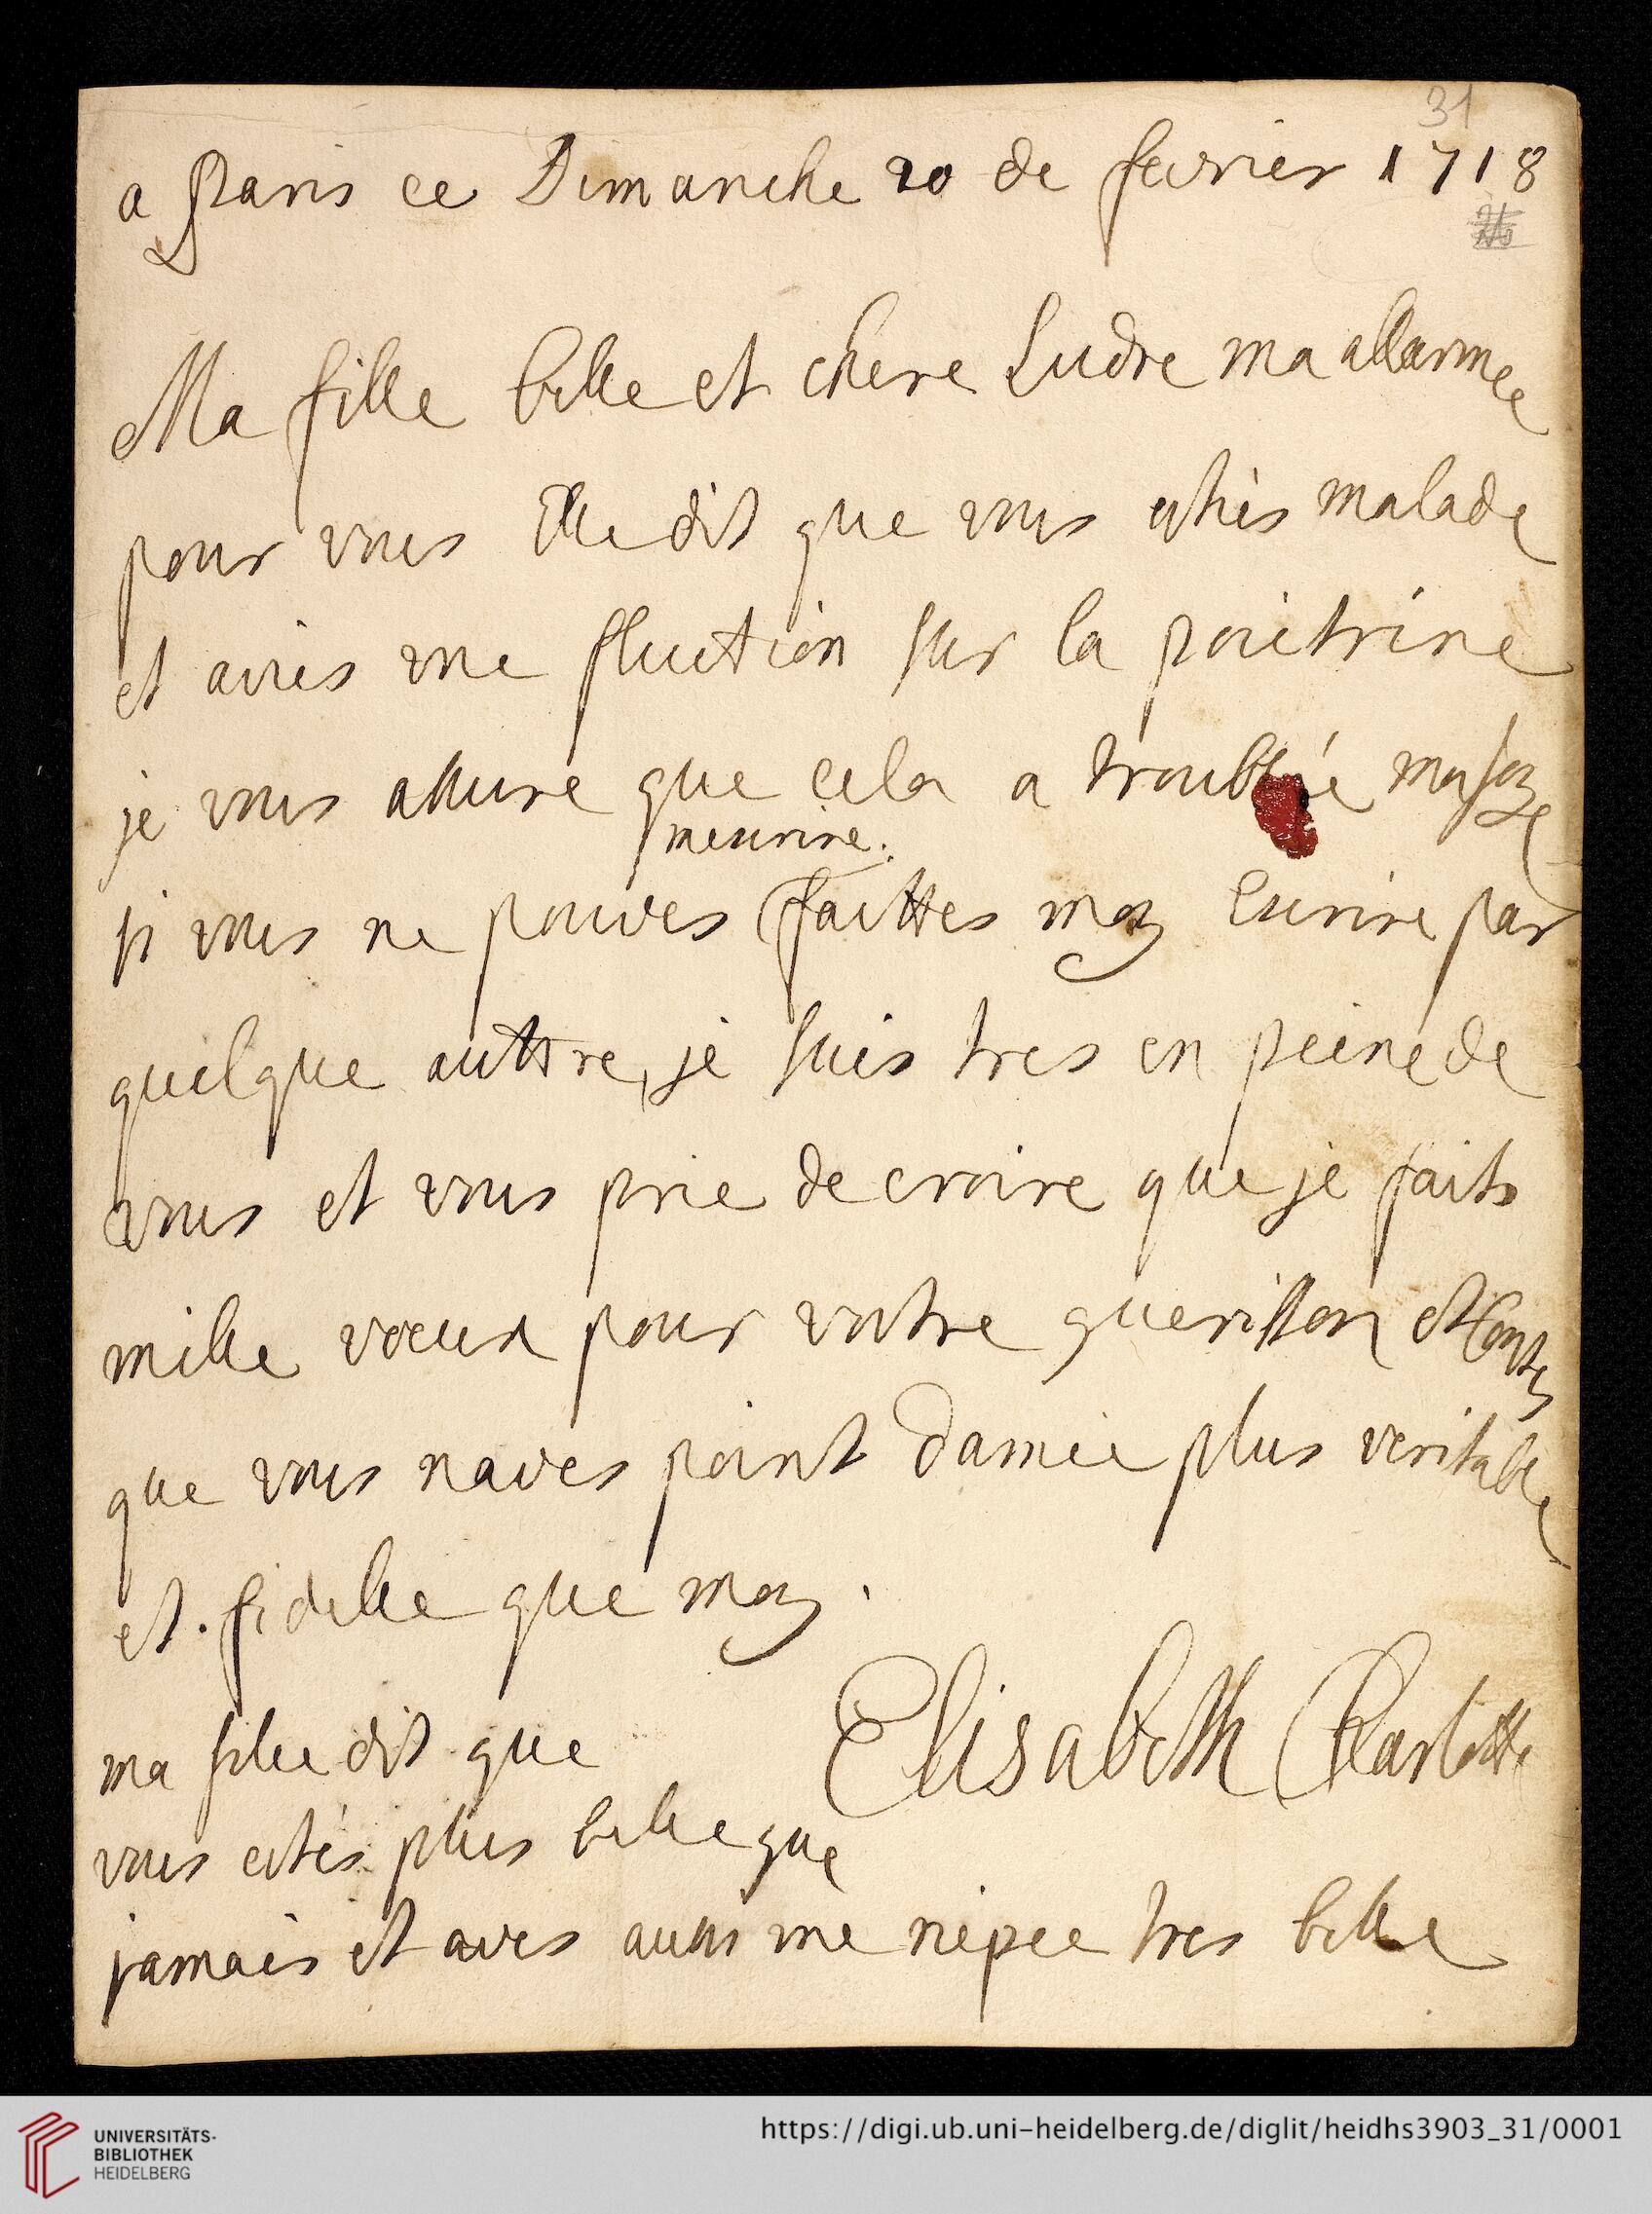 31
a Paris ce Dimanche 20 de fevrier 1718
Ma fille belle et chere Ludre ma allarmee
pour vous Elle dit que vous esties malade
et avies une fluction sur la poietrine
je vous assure que cela a troublée ma joye
mescrire.
si vous ne pouves faittes moy Escrire par
quelque auttre, je suis tres en peine de
vous et vous prie de croire que je faits
mille voeux pour vostre guerisson et contes
que vous naves point damie plus veritable
et fidelle que moy.
Elisabeth Charlotte
ma fille dit que
vous estes plus belle que
jamais et aves aussi une niepce tres belle
UNIVERSITÄTS-
BIBLIOTHEK
HEIDELBERG
https://digi.ub.uni-heidelberg.de/diglit/heidhs3903_31/0001